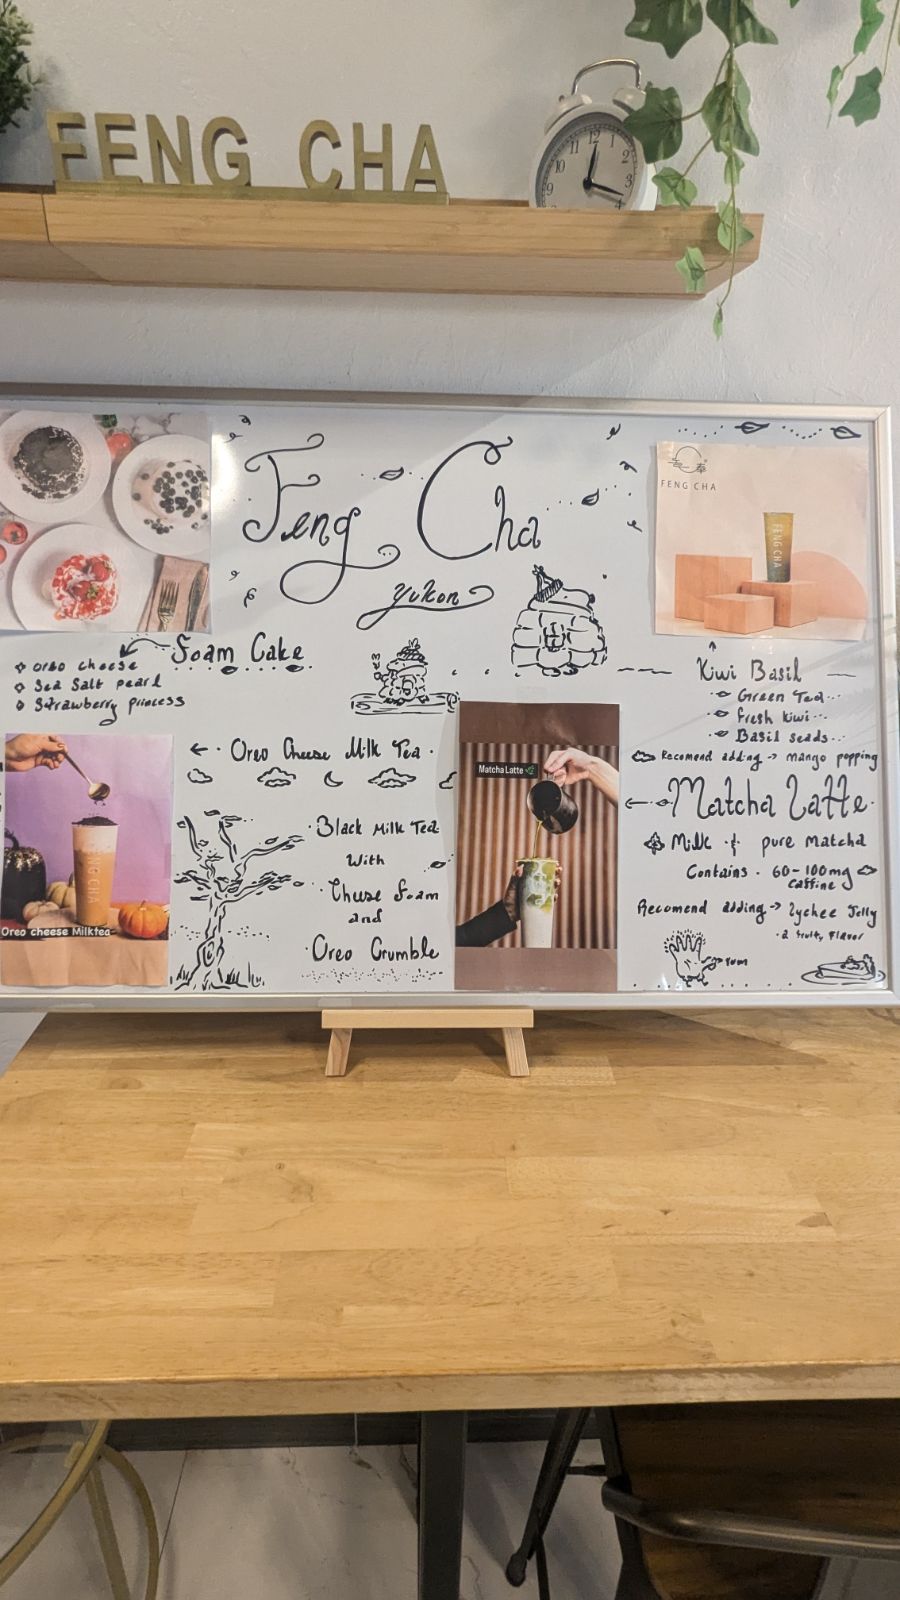 FENG CHA
11 12 1
10 2
9 3
4
Feng Cha
Yukon
FENG CHA
FENG CHA
Foam Cake
Oreo cheese
Sea Salt pearl
Strawberry princess
Kiwi Basil
Green Tea
fresh kiwi
Basil seads
Recomend adding → mango popping
Oreo Cheese Milk Tea
Black Milk Tea
With
Cheese Foam
and
Oreo Crumble
CHA
Oreo cheese Milktea
Matcha Latte
Matcha Latte
Milk & pure Matcha
Contains 60-100mg
Caffine
Recomend adding → Lychee Jelly
a fruity Flavor
yum